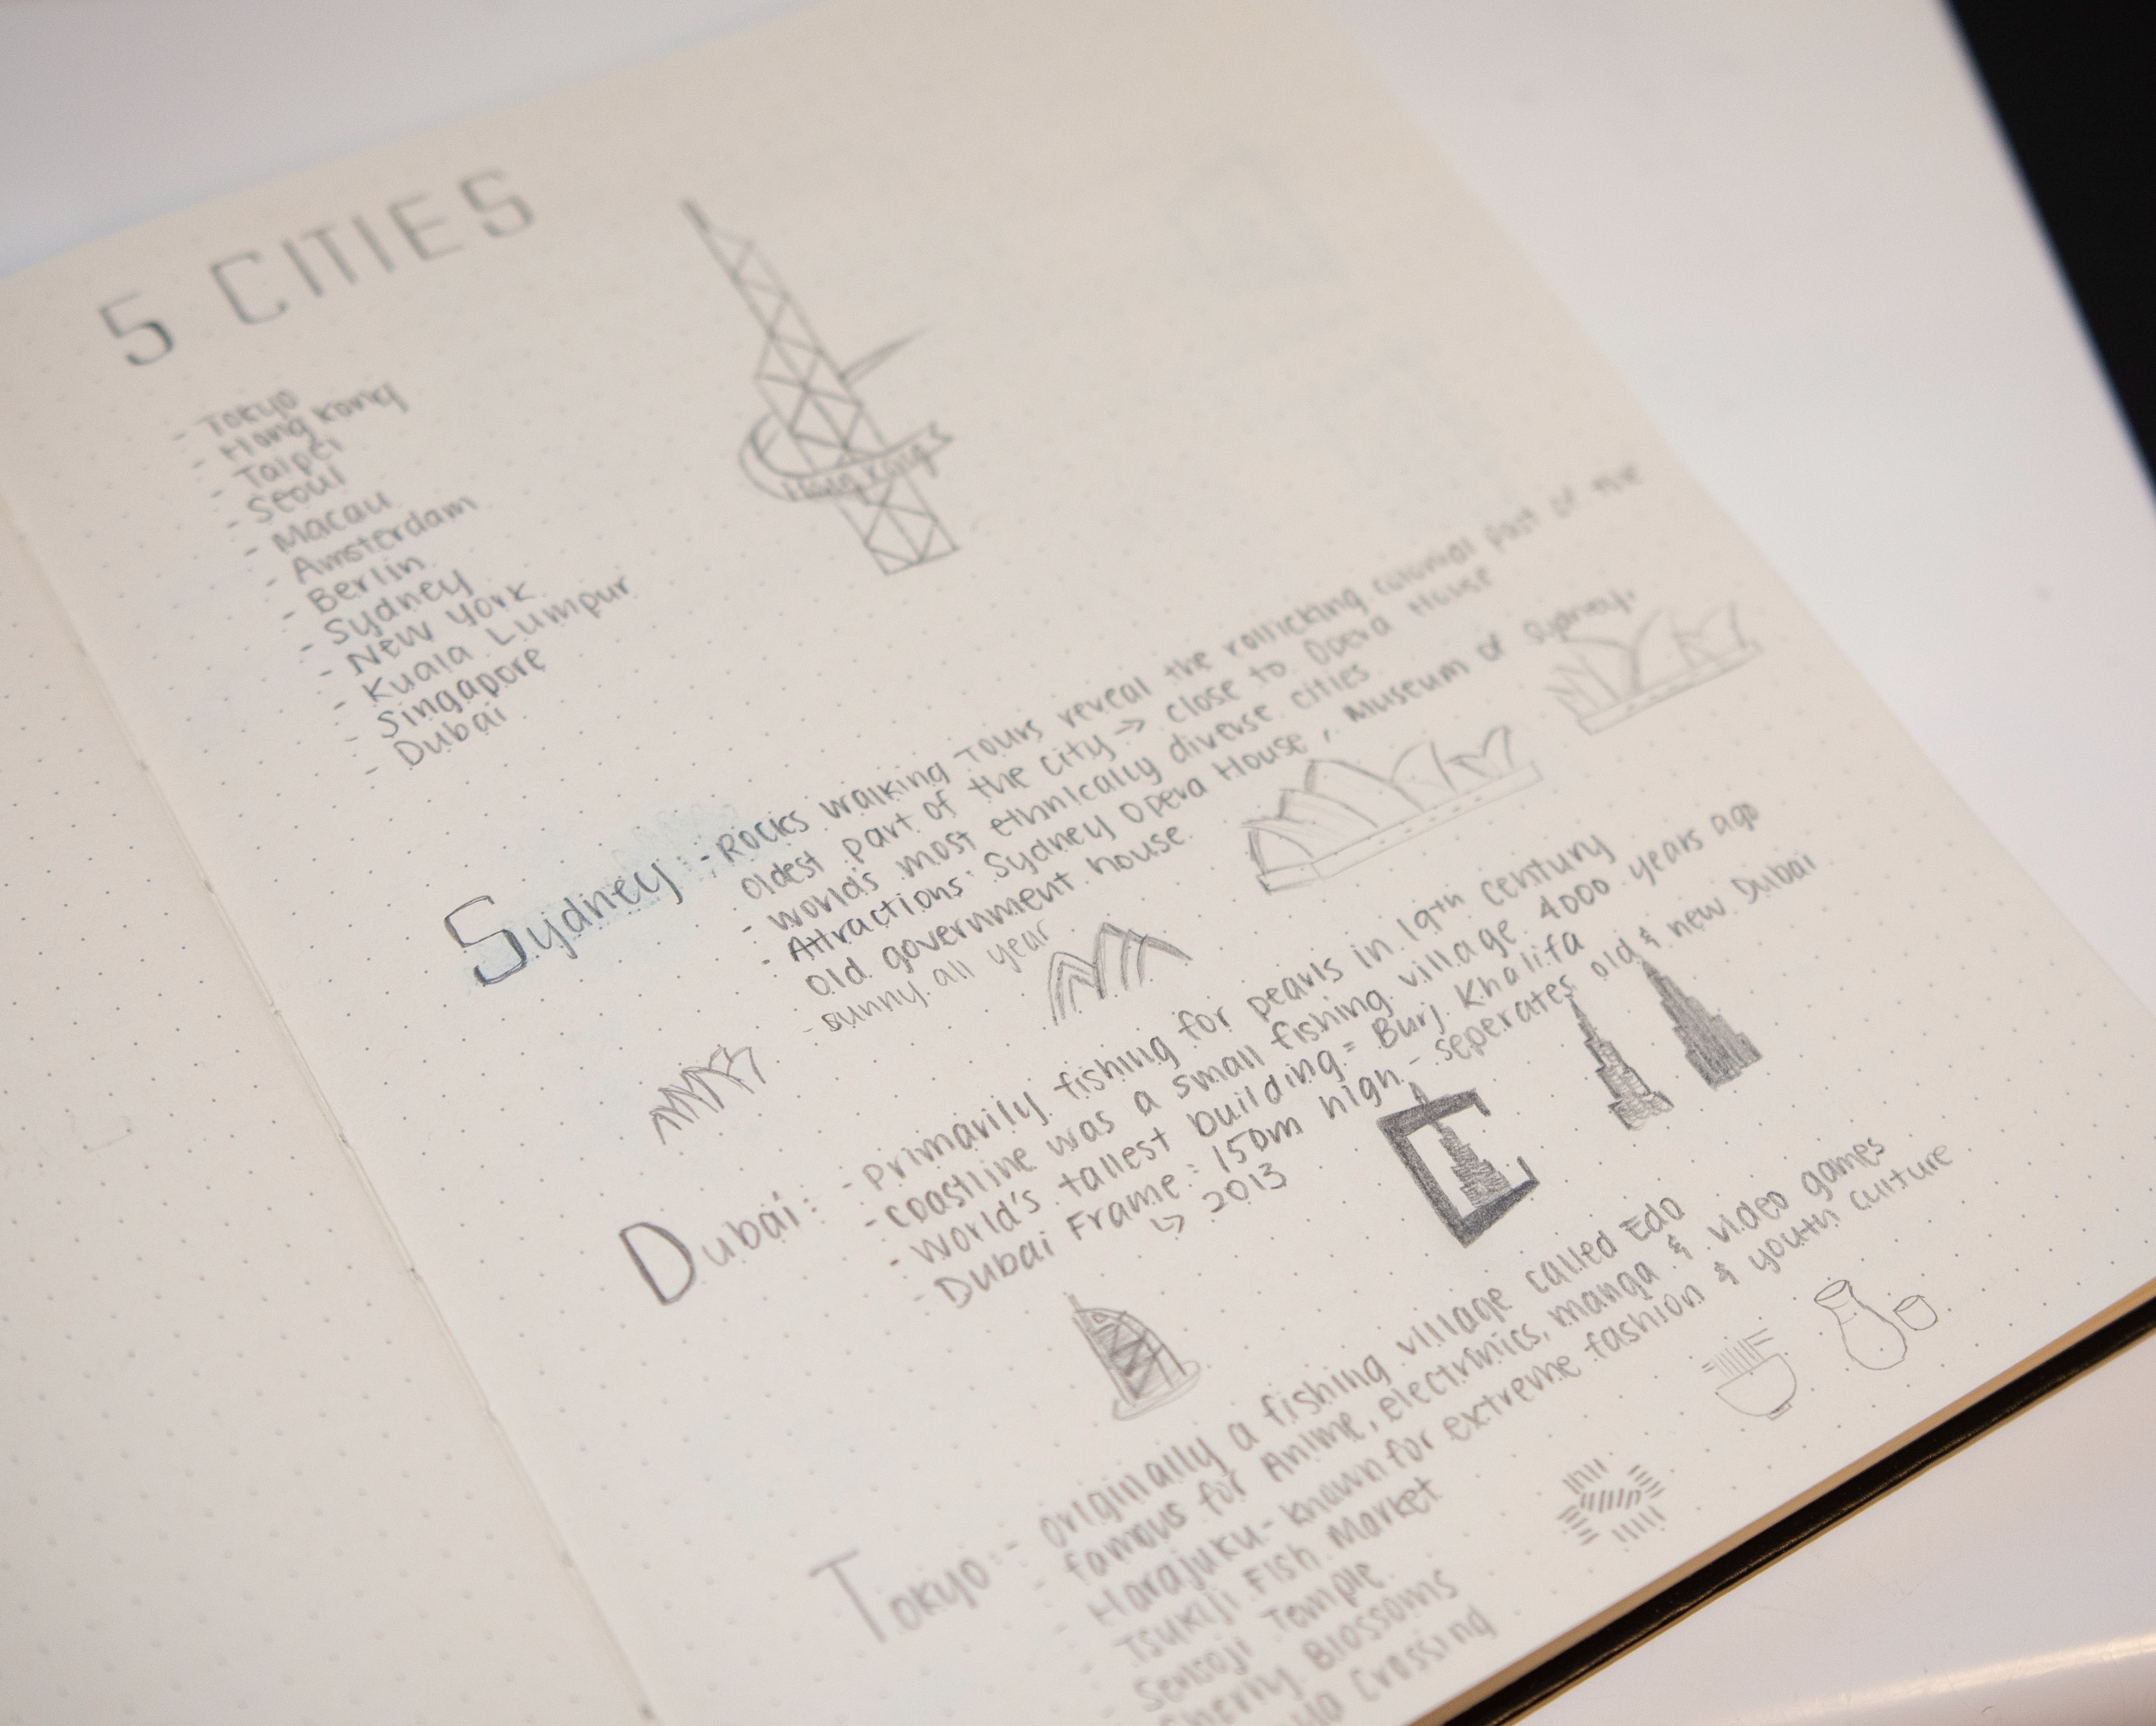 5 CITIES
- Tokyo
- Hong Kong
- Taipei
- Seoul
- Macau
- Amsterdam
- Berlin
- Sydney
- New York
- Kuala Lumpur
- Singapore
- Dubai
Hong Kong
Sydney: - Rocks walking tours reveal the rollicking colonial past of the
oldest part of the city → close to Opera House
- world's most ethnically diverse cities
- Attractions: Sydney Opera House, Museum of Sydney,
old government house
- sunny all year
Dubai: - primarily fishing for pearls in 19th century
- coastline was a small fishing village 4000 years ago
- world's tallest building = Burj Khalifa
- Dubai Frame: 150m high - seperates old & new Dubai
↳ 2013
Tokyo: - originally a fishing village called Edo
- famous for Anime, electrinics, manga & video games
- Harajuku - known for extreme fashion & youth culture
- Tsukiji Fish Market
- Sensoji Temple
- Cherry Blossoms
Crossing